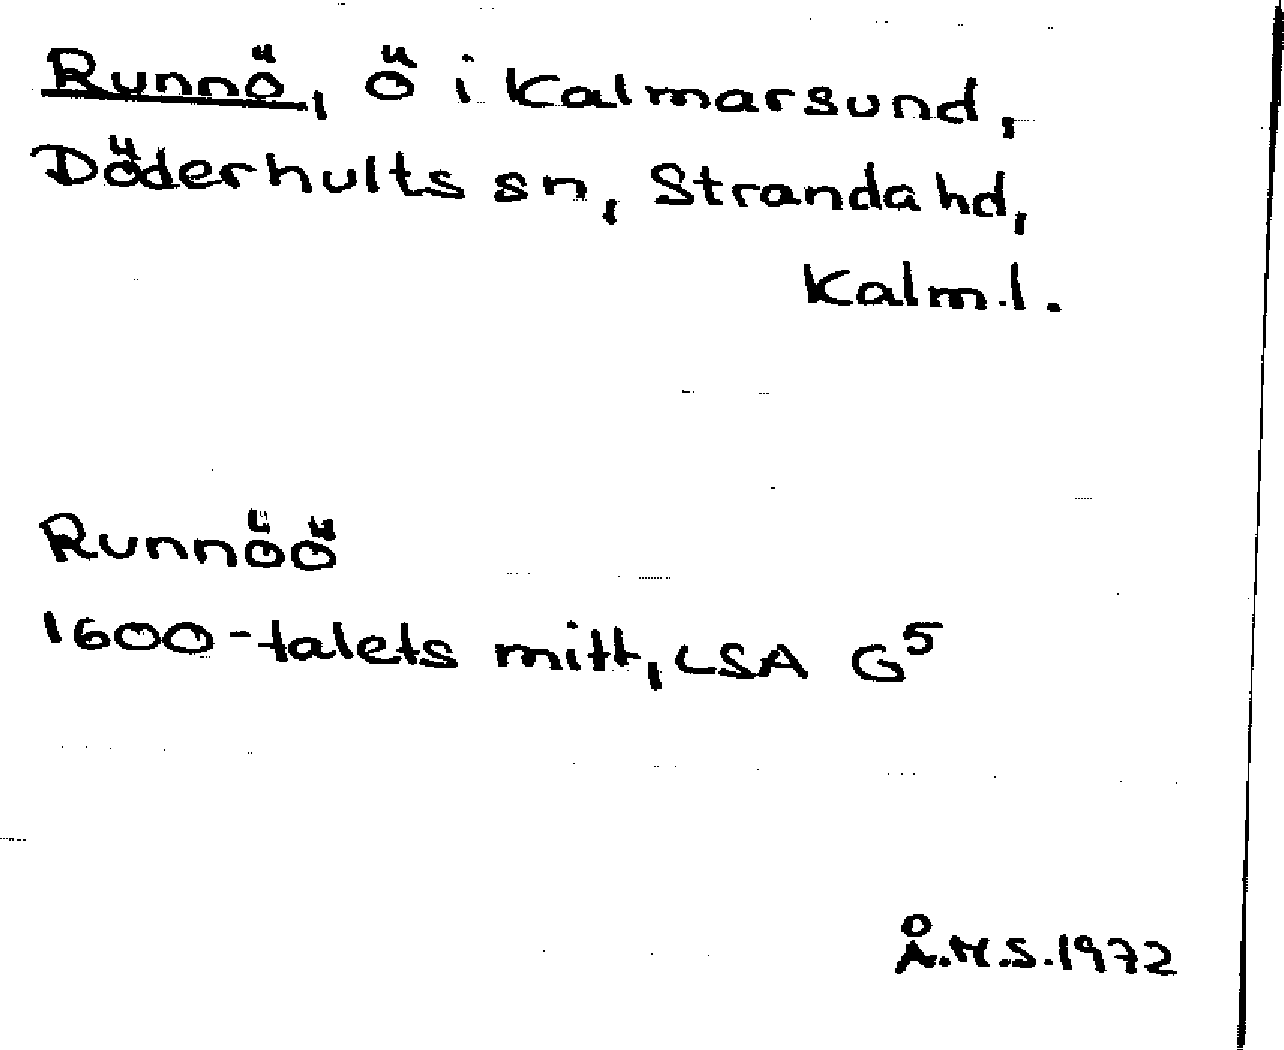 Runnö, Ö i Kalmarsund,
Döderhults sn, Stranda hd,
Kalm.l.
Runnöö
1600-talets mitt, LSA G⁵
Å.H.S.1972